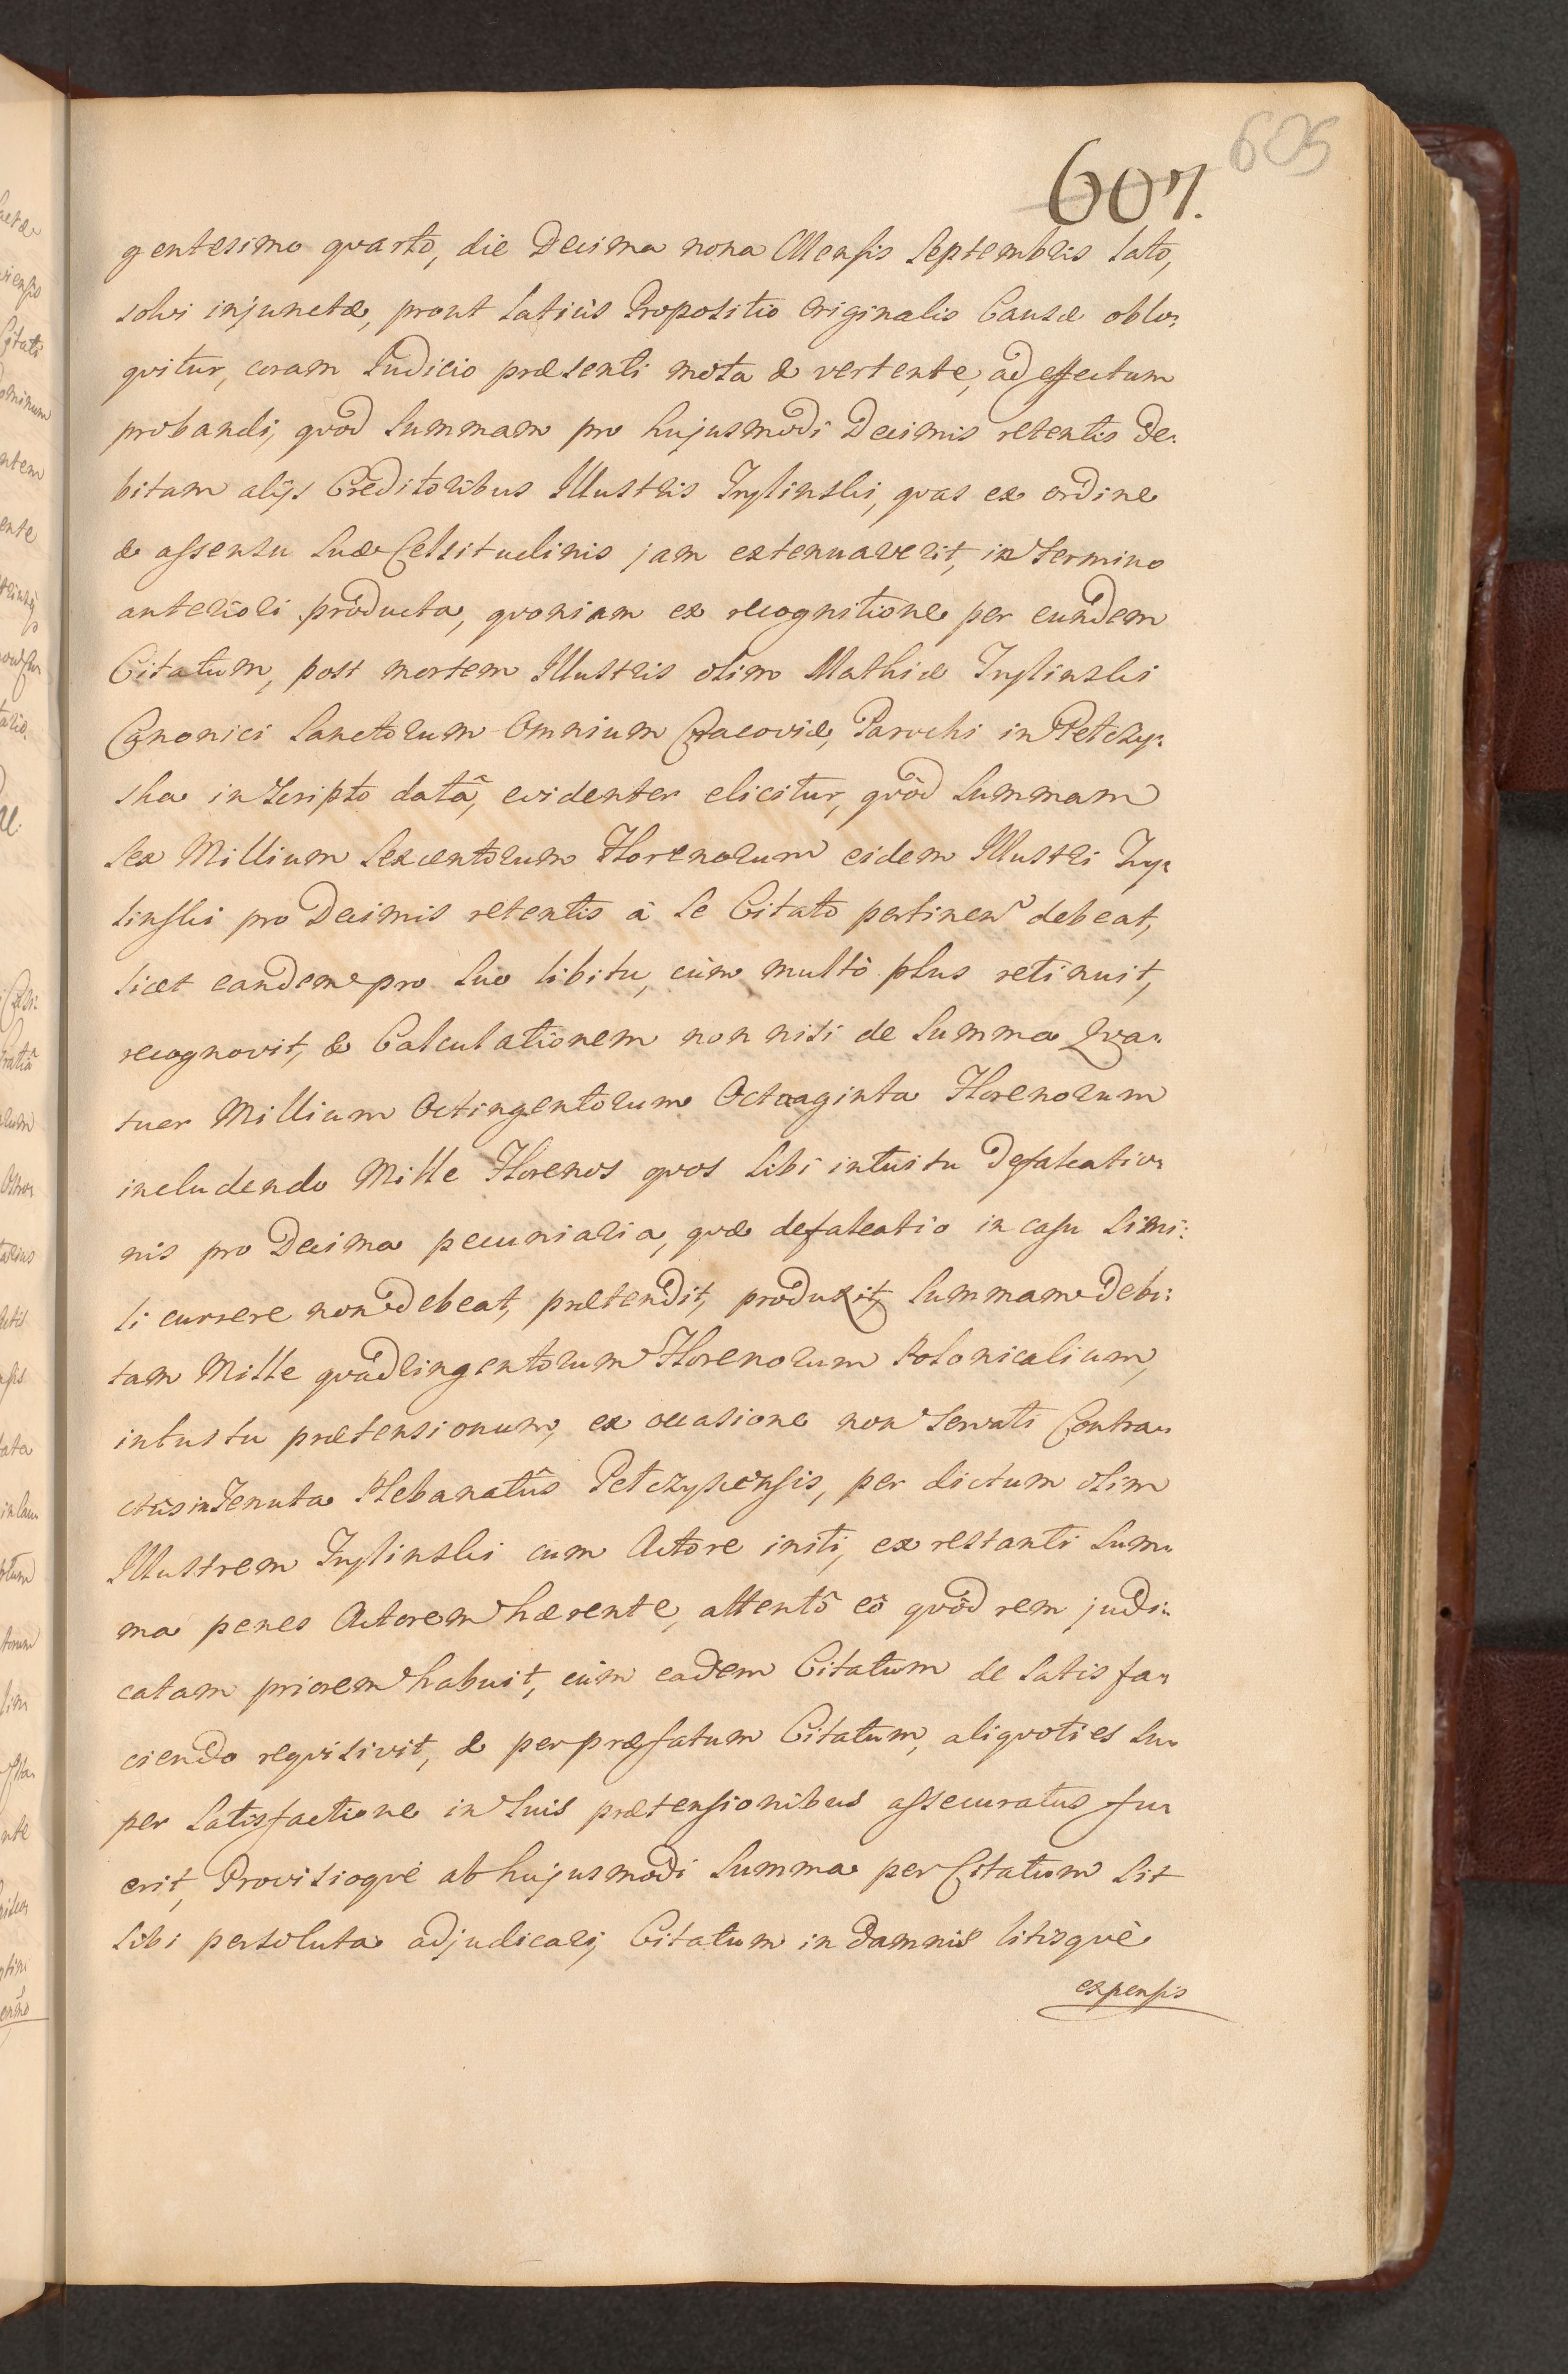 605
607.
gentesimo qvarto, die Decima nona Mensis Septembris lato,
solvi injunctæ, prout latiùs Propositio originalis Causæ oblo:
qvitur, coram Judicio præsenti mota & vertente, ad effectum
probandi, qvod Summam pro hujusmodi Decimis retentis de:
bitam alijs Creditoribus Illustris Trylinski, qvas ex ordine
& assensu Suæ Celsitudinis jam extenuaverit, in Termino
anteriori producta, qvoniam ex recognitione per eundem
Citatum, post mortem Illustris olim Mathiæ Trylinski
Canonici Sanctorum Omnium Cracoviæ, Parochi in Petczy:
ska in Scripto datâ, evidenter elicitur, qvòd Summam
Sex Millium Sexcentorum Florenorum eidem Illustri Try:
linski pro Decimis retentis à Se Citato pertinere debeat,
licet eandem pro Suo libitu, cùm multò plus retinuit,
recognovit, & Calculationem non nisi de Summa Qva:
tuor Millium Octingentorum Octuaginta Florenorum
includendo Mille Florenos qvos Sibi intuitu Defalcatio:
nis pro Decima pecuniaria, qvæ defalcatio in casu Simi:
li currere non debeat, prætendit, produxit, Summam debi:
tam Mille qvadringentorum Florenorum Polonicalium,
intuitu prætensionum, ex occasione non Servati Contra:
ctûs in Tenuta Plebanatûs Petczyscensis, per dictum olim
Illustrem Trylinski cum Actore initi, ex restanti Sum:
ma penes Actorem hærente, attentô eô qvôd rem judi:
catam priorem habuit, cùm eadem Citatum de Satisfa:
ciendo reqvisivit, & per præfatum Citatum, aliqvoties Su:
per Satisfactione in Suis prætensionibus assecuratus fu:
erit, Provisioqvè ab hujusmodi Summa per Citatum Sit
Sibi persoluta adjudicari, Citatum in damnis litisqvè
expensis